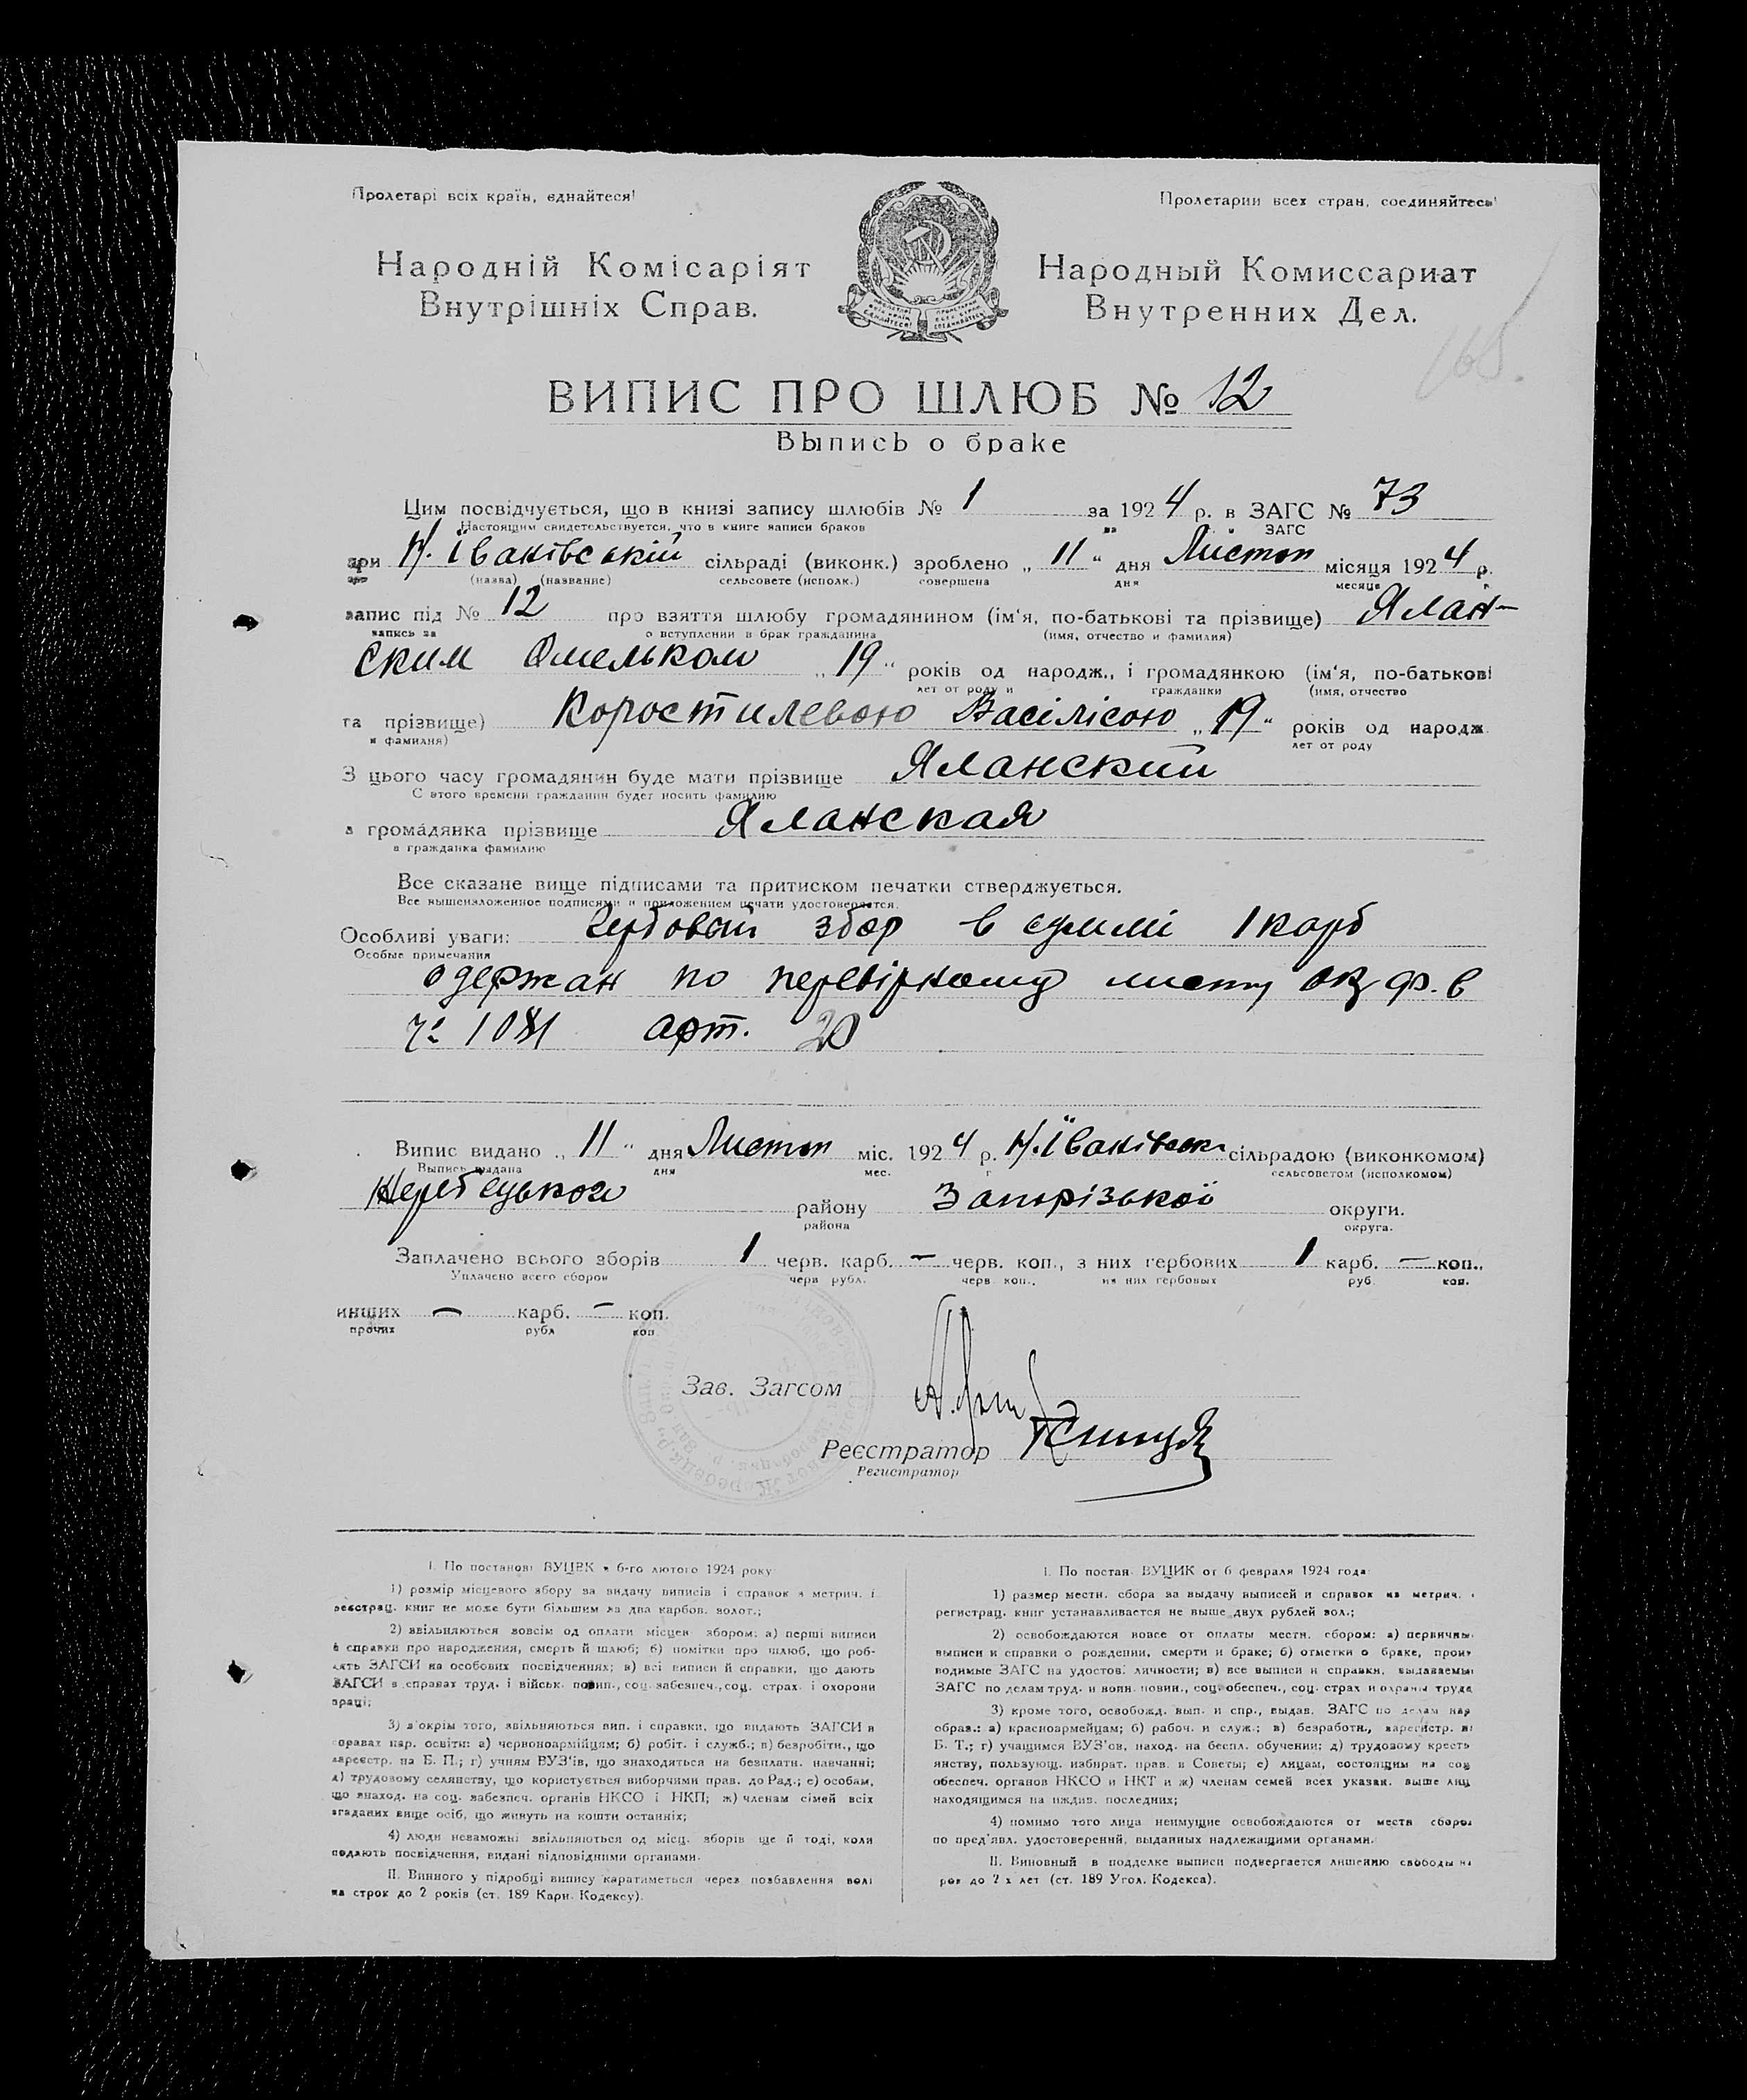 Пролетарі всіх країн, єднайтеся!
Пролетарии всех стран, соединяйтесь!
Народній Комісаріят
Внутрішніх Справ.
Народный Комиссариат
Внутренних Дел.
165.
ВИПИС ПРО ШЛЮБ № 12
Выпись о браке
Цим посвідчується, що в книзі запису шлюбів № 1 за 1924 р. в ЗАГС № 73
Настоящим свидетельствуется, что в книге записи браков за г. в ЗАГС
при Н. Іванівській сільраді (виконк.) зроблено „11“ дня Листоп місяця 1924 р.
при (назва) (название) сельсовете (исполк.) совершена дня месяца г.
запис під № 12 про взяття шлюбу громадянином (ім‘я, по-батькові та прізвище) Ялан-
запись за о вступлении в брак гражданина (имя, отчество и фамилия)
ским Омельком „19“ років од народж., і громадянкою (ім‘я, по-батькові
лет от роду и гражданки (имя, отчество
та прізвище) Коростилевою Васілісою „19“ років од народж.
и фамилия) лет от роду
З цього часу громадянин буде мати прізвище Яланский
С этого времени гражданин будет носить фамилию
а громадянка прізвище Яланская
а гражданка фамилию
Все сказане вище підписами та притиском печатки стверджується.
Все вышеизложенное подписями и приложением печати удостоверяется.
Особливі уваги: Гербовий збор в суммі 1 карб
Особые примечания
одержан по перевіркому листу ОкрФ.в
№ 1081 арт. 20
Випис видано „11“ дня Листоп міс. 1924 р. Н.Іванівськ. сільрадою (виконкомом)
Выпись выдана дня мес. г. сельсоветом (исполкомом)
Жеребецького району Запорізької округи.
района округа.
Заплачено всього зборів 1 черв. карб. — черв. коп., з них гербових 1 карб. — коп.,
Уплачено всего сборов черв. рубл. черв. коп., из них гербовых руб. коп.
инших — карб. — коп.
прочих рубл коп
Зав. Загсом
Реєстратор
Регистратор
I. По постанові ВУЦВК з 6-го лютого 1924 року:
1) розмір місцевого збору за видачу виписів і справок з метрич. і
реєстрац. книг не може бути більшим за два карбов. золот.;
2) звільняються зовсім од оплати місцев збором: а) перші виписи
й справки про народження, смерть й шлюб; б) помітки про шлюб, що роб-
лять ЗАГСИ на особових посвідченнях; в) всі виписи й справки, що дають
ЗАГСИ в справах труд. і військ. повин., соц. забезпеч., соц. страх. і охорони
праці;
3) з‘окрім того, звільняються вип. і справки, що видають ЗАГСИ в
справах нар. освіти: а) червоноармійцям; б) робіт. і служб.; в) безробітн., що
зареєстр. на Б. П.; г) учням ВУЗ‘ів, що знаходяться на безплатн. навчанні;
д) трудовому селянству, що користується виборчими прав. до Рад.; е) особам,
що знаход. на соц. забезпеч. органів НКСО і НКП; ж) членам сімей всіх
згаданих вище осіб, що живуть на кошти останніх;
4) люди незаможні звільняються од місц. зборів ще й тоді, коли
подають посвідчення, видані відповідними органами.
II. Винного у підробці випису каратиметься через позбавлення волі
на строк до 2 років (ст. 189 Карн. Кодексу).
I. По постан. ВУЦИК от 6 февраля 1924 года:
1) размер местн. сбора за выдачу выписей и справок из метрич. и
регистрац. книг устанавливается не выше двух рублей зол.;
2) освобождаются вовсе от оплаты местн. сбором: а) первичны
выписи и справки о рождении, смерти и браке; б) отметки о браке, произ
водимые ЗАГС на удостов. личности; в) все выписи и справки, выдаваемы
ЗАГС по делам труд. и воин. повин., соц. обеспеч., соц. страх и охраны труда
3) кроме того, освобожд. вып. и спр., выдав. ЗАГС по делам нар
образ.: а) красноармейцам; б) рабоч. и служ.; в) безработн., зарегистр. на
Б. Т.; г) учащимся ВУЗ‘ов, наход. на беспл. обучении; д) трудовому кресть
янству, пользующ. избират. прав. в Советы; е) лицам, состоящим на соц
обеспеч. органов НКСО и НКТ и ж) членам семей всех указан. выше лиц
находящимся на иждив. последних;
4) помимо того лица неимущие освобождаются от местн сборов
по пред‘явл. удостоверений, выданных надлежащими органами.
II. Виновный в подделке выписи подвергается лишению свободы на
рок до 2 х лет (ст. 189 Угол. Кодекса).